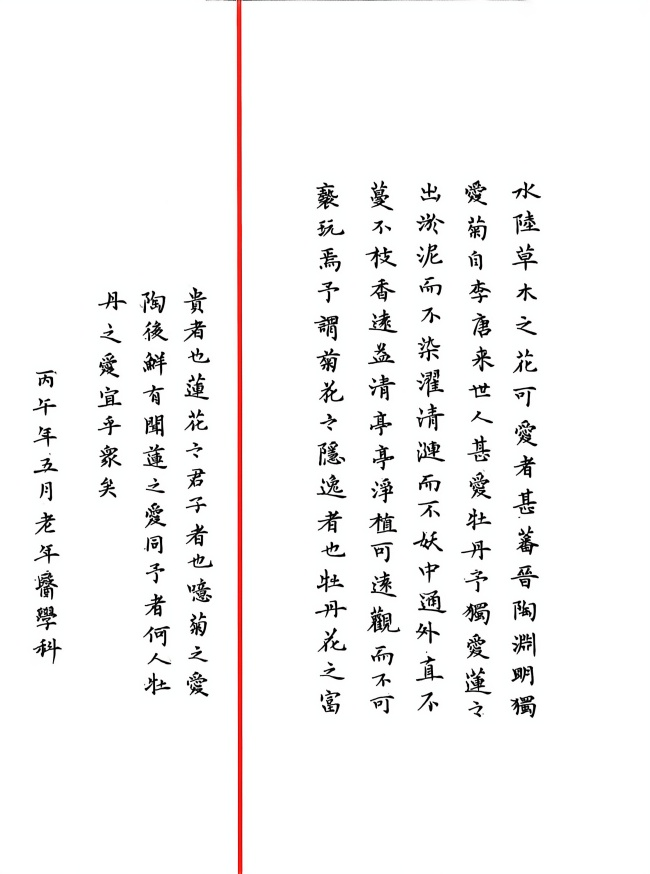 水陸草木之花可愛者甚蕃晉陶淵明獨
愛菊自李唐来世人甚愛牡丹予獨愛蓮之
出淤泥而不染濯清漣而不妖中通外直不
蔓不枝香遠益清亭亭淨植可遠觀而不可
褻玩焉予謂菊花之隱逸者也牡丹花之富
貴者也蓮花之君子者也噫菊之愛
陶後鮮有聞蓮之愛同予者何人牡
丹之愛宜乎衆矣
丙午年五月老年醫學科